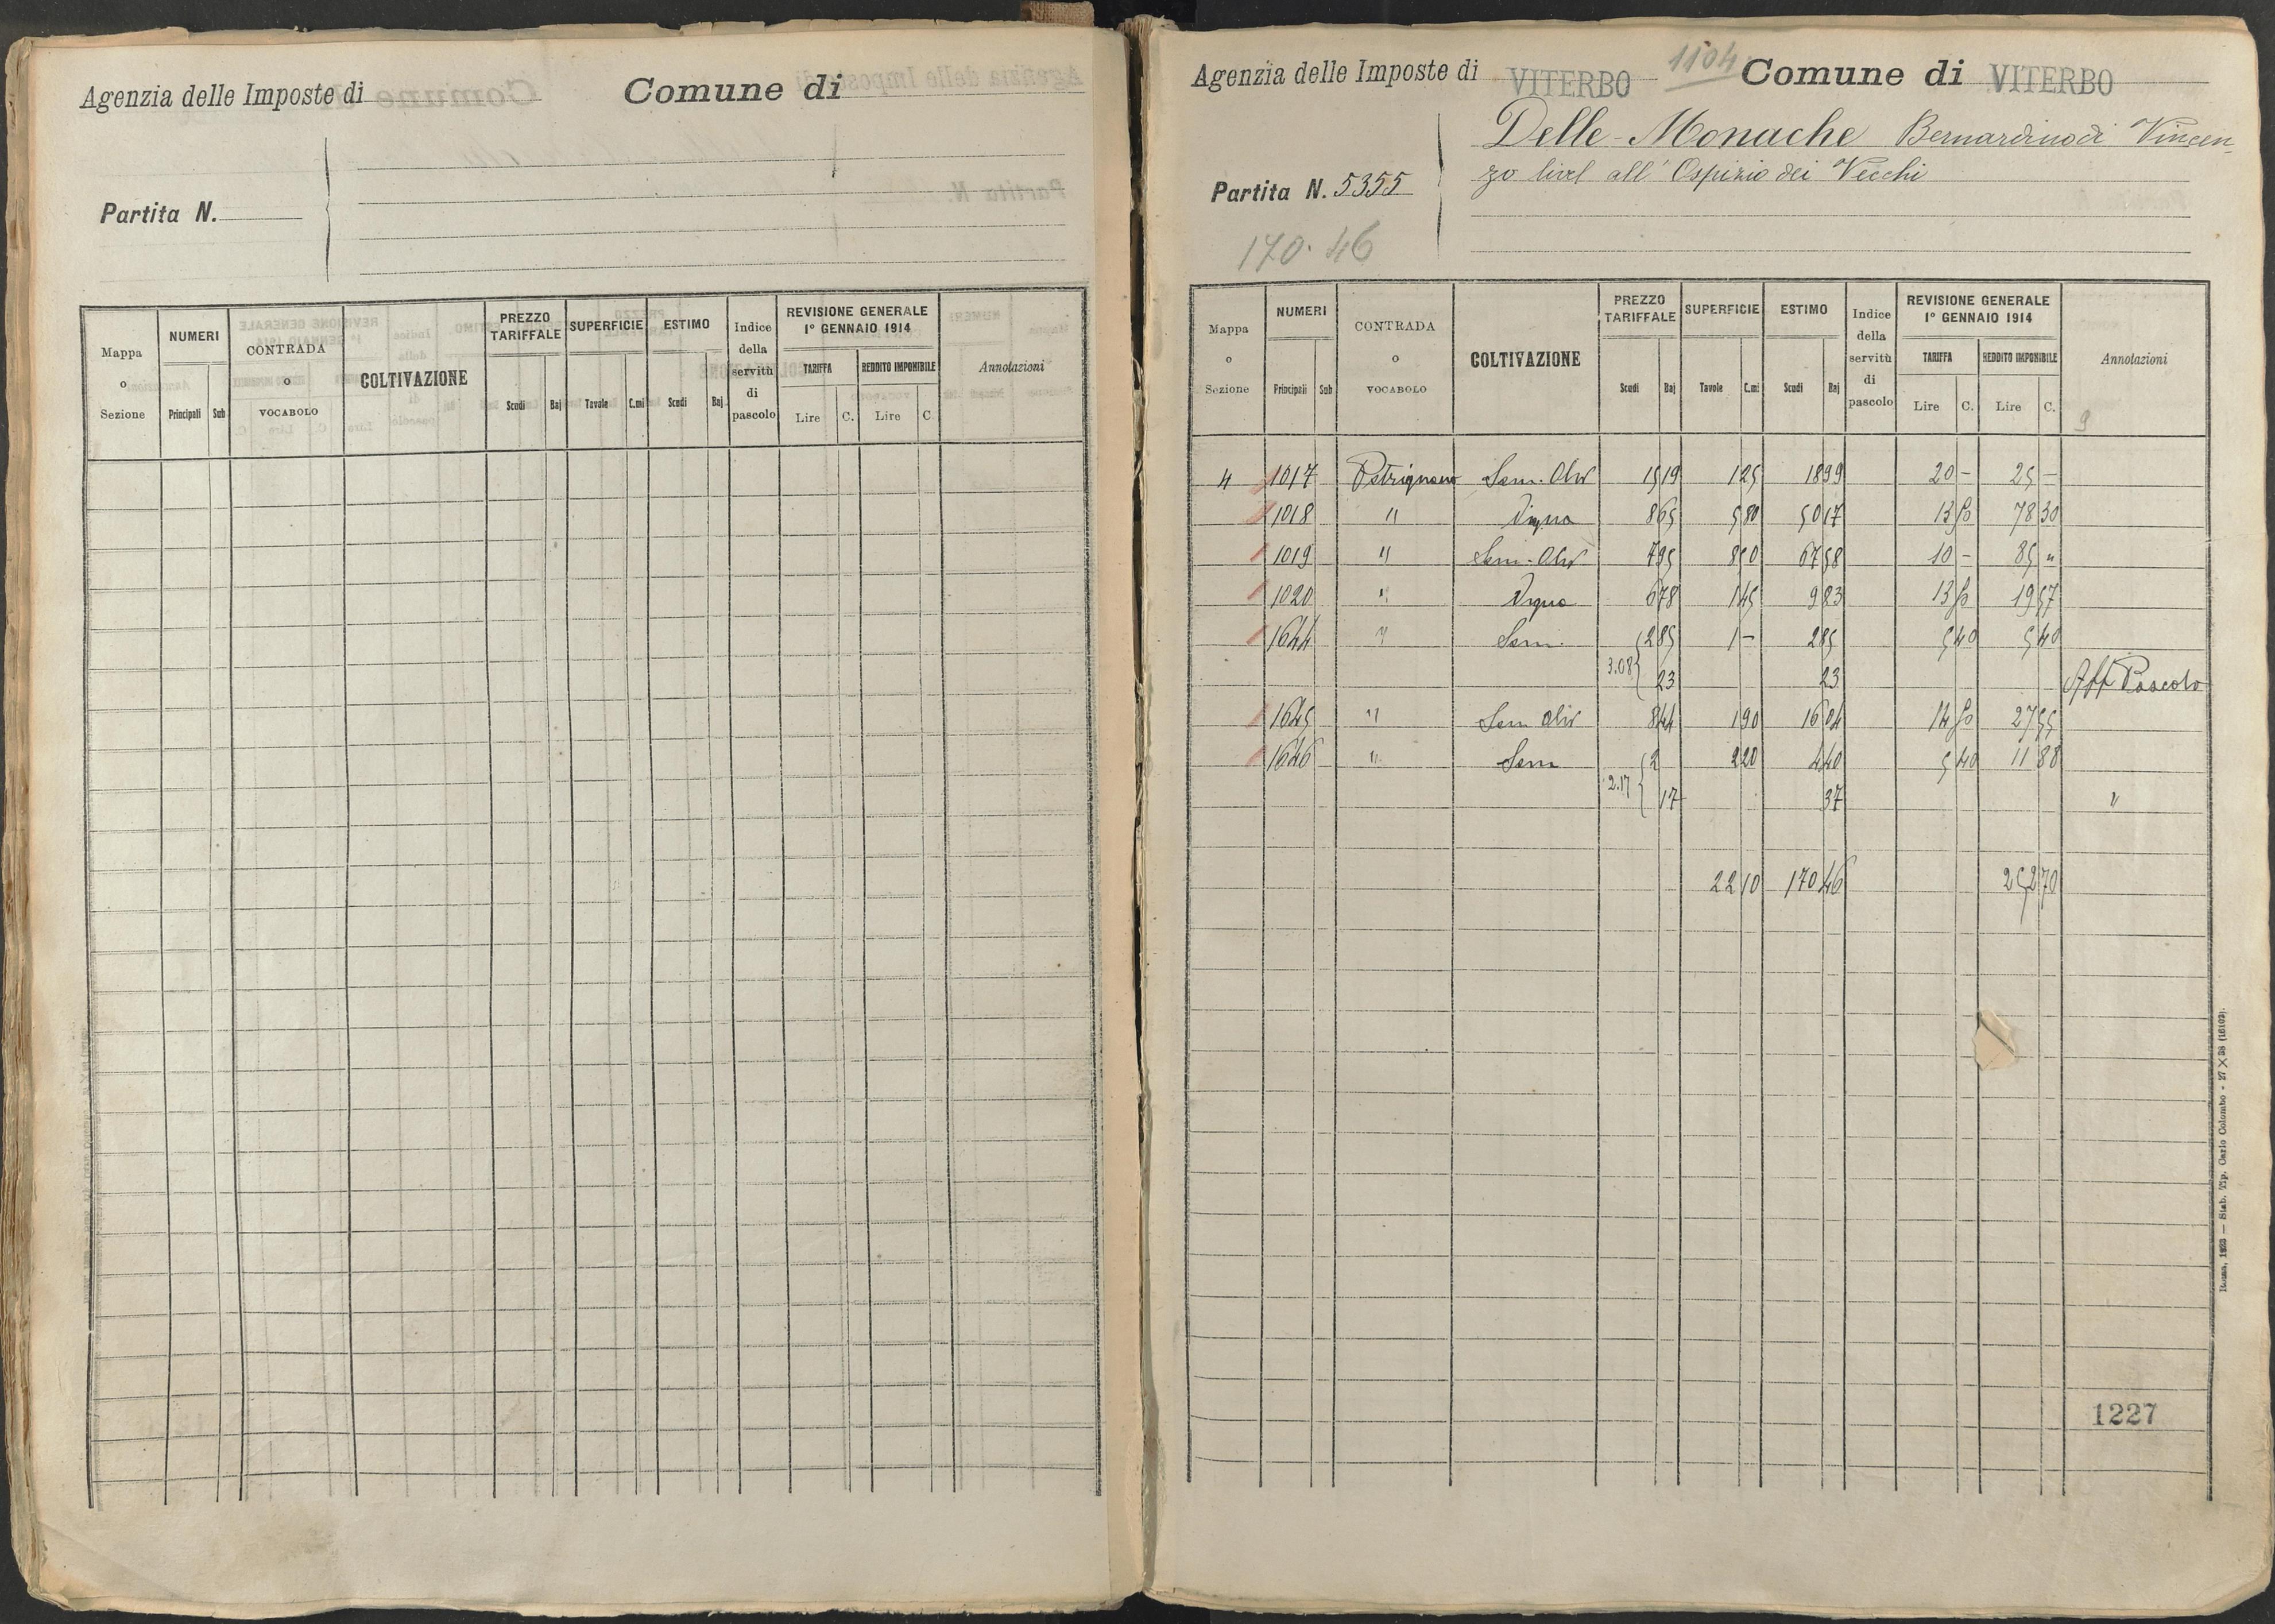 Agenzia delle Imposte di
Comune di
Partita N.
Mappa o Sezione
NUMERI
Principali Sub
CONTRADA o VOCABOLO
COLTIVAZIONE
PREZZO TARIFFALE
Scudi Baj
SUPERFICIE
Tavole C.mi
ESTIMO
Scudi Baj.
Indice della servitù di pascolo
REVISIONE GENERALE
1° GENNAIO 1914
TARIFFA
Lire C.
REDDITO IMPONIBILE
Lire C
Annotazioni
Agenzia delle Imposte di VITERBO 1104 Comune di VITERBO
Delle-Monache Bernardino di Vincen-
zo livel all' Ospizio dei Vecchi
Partita N. 5355
170.46
Mappa o Sezione
NUMERI
Principali Sub
CONTRADA o VOCABOLO
COLTIVAZIONE
PREZZO TARIFFALE
Scudi Baj
SUPERFICIE
Tavole C.mi
ESTIMO
Scudi Baj
Indice della servitù di pascolo
REVISIONE GENERALE
1° GENNAIO 1914
TARIFFA
Lire C.
REDDITO IMPONIBILE
Lire C.
Annotazioni
9
4 1017 Petrignano Sem. Oliv 15 19 1 25 18 99 20 - 25 -
1018 " Vigna 8 65 5 80 50 17 13 50 78 30
1019 " Sem. Oliv 7 95 8 50 67 58 10 - 85 "
1020 " Vigna 6 78 1 45 9 83 13 50 19 57
1644 " Sem. 2 85 1 - 2 85 5 40 5 40
3.08 23 23 Aff Pascolo
1645 " Sem oliv 8 44 1 90 16 04 14 50 27 55
1646 " Sem 2 2 20 4 40 5 40 11 88
2.17 17 37 "
22 10 170 46 252 70
1227
Roma, 1923 — Stab. Tip. Carlo Colombo - 27 X 38 (16102).